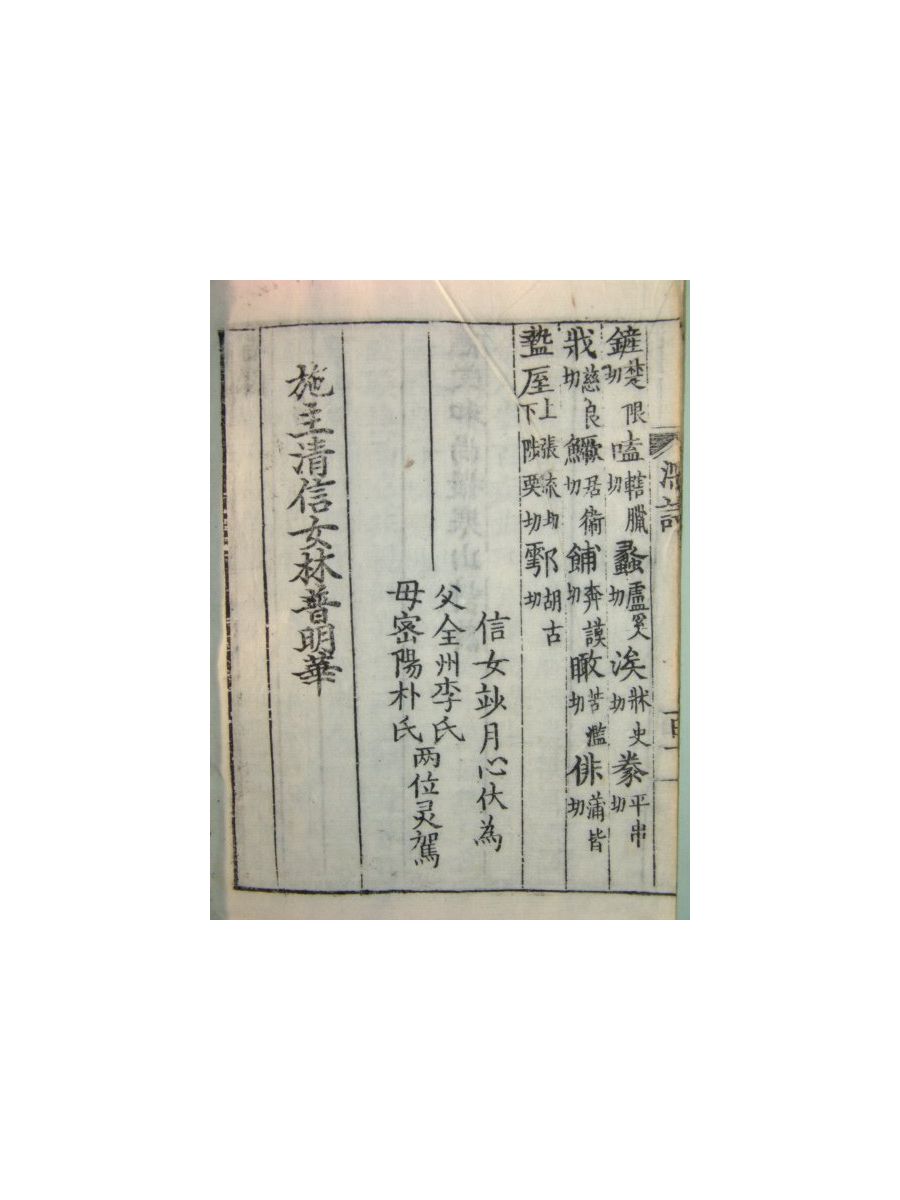 鏟楚限切嗑轄臘切蠡盧奚切涘牀史切豢平串切
戕慈良切鱖居衞切餔奔謨切瞰苦濫切俳蒲皆切
盩厔上張流切下陟栗切鄠胡古切
信女玅月心伏為
父全州李氏
母密陽朴氏
两位灵駕
施主清信女林普明華